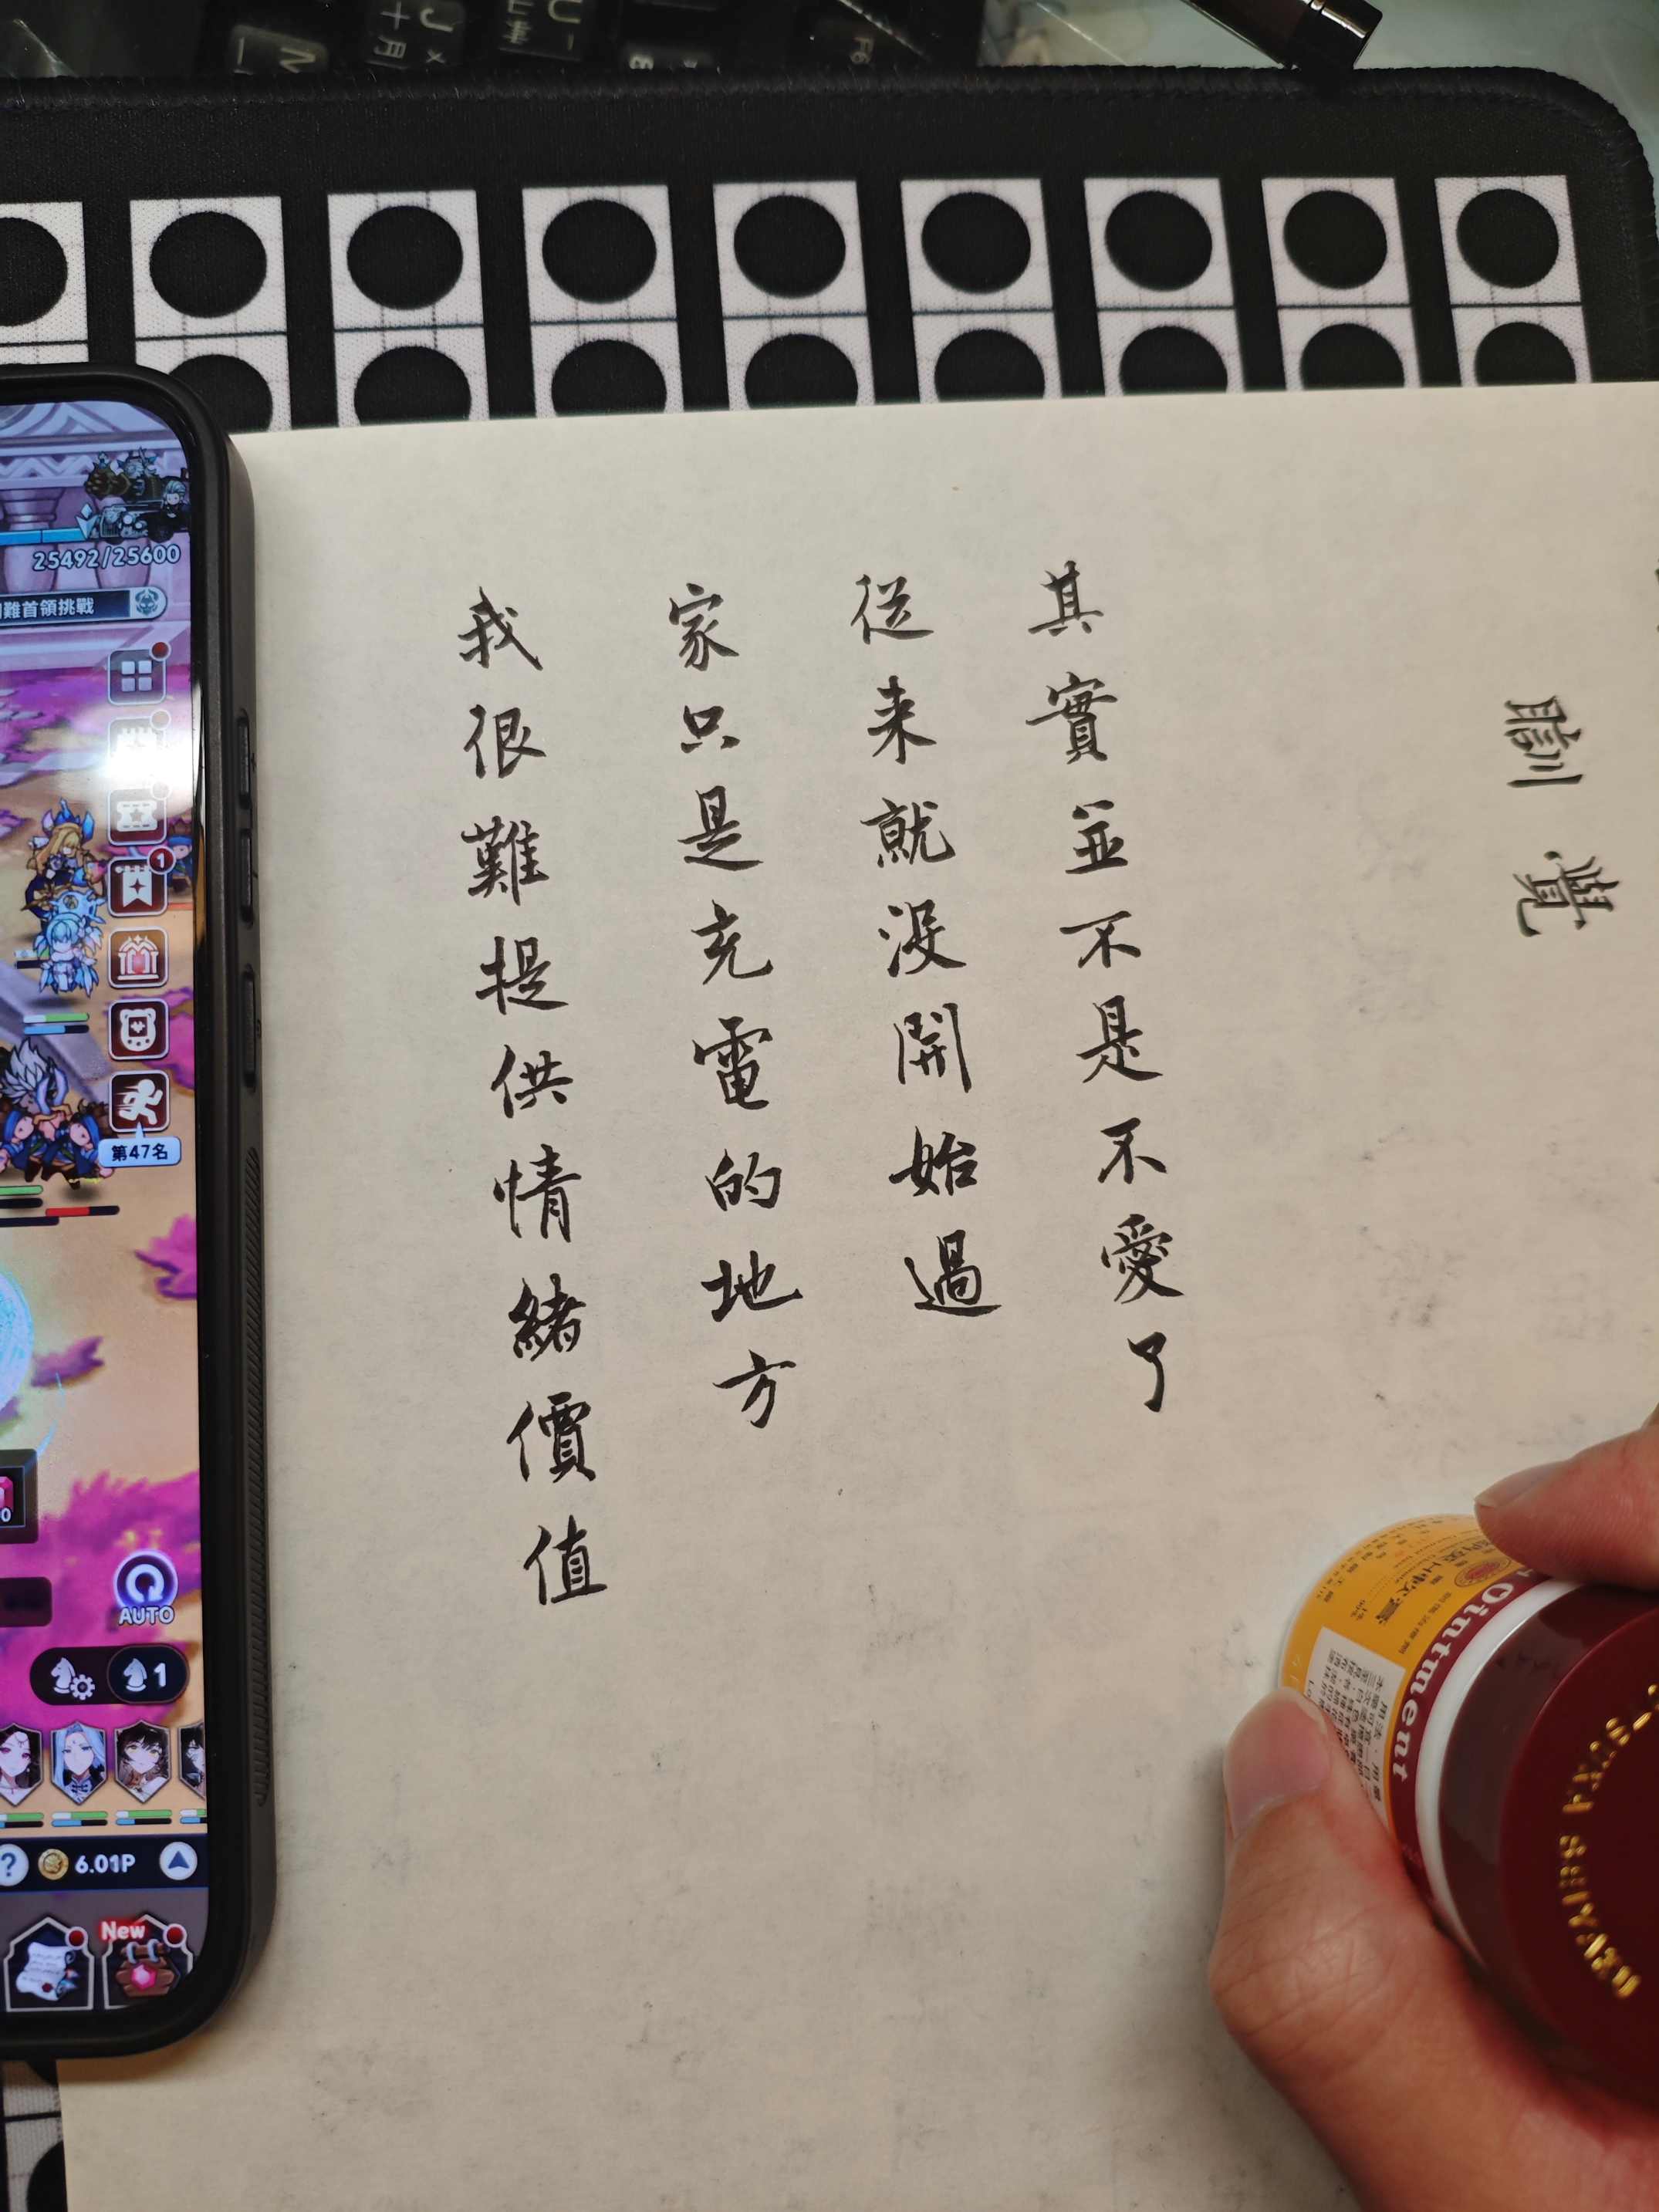 其實並不是不愛了
從来就沒開始過
家只是充電的地方
我很難提供情緒價值
覺
25492/25600
難首領挑戰
1
第47名
AUTO
1
6.01P
New
Ointment